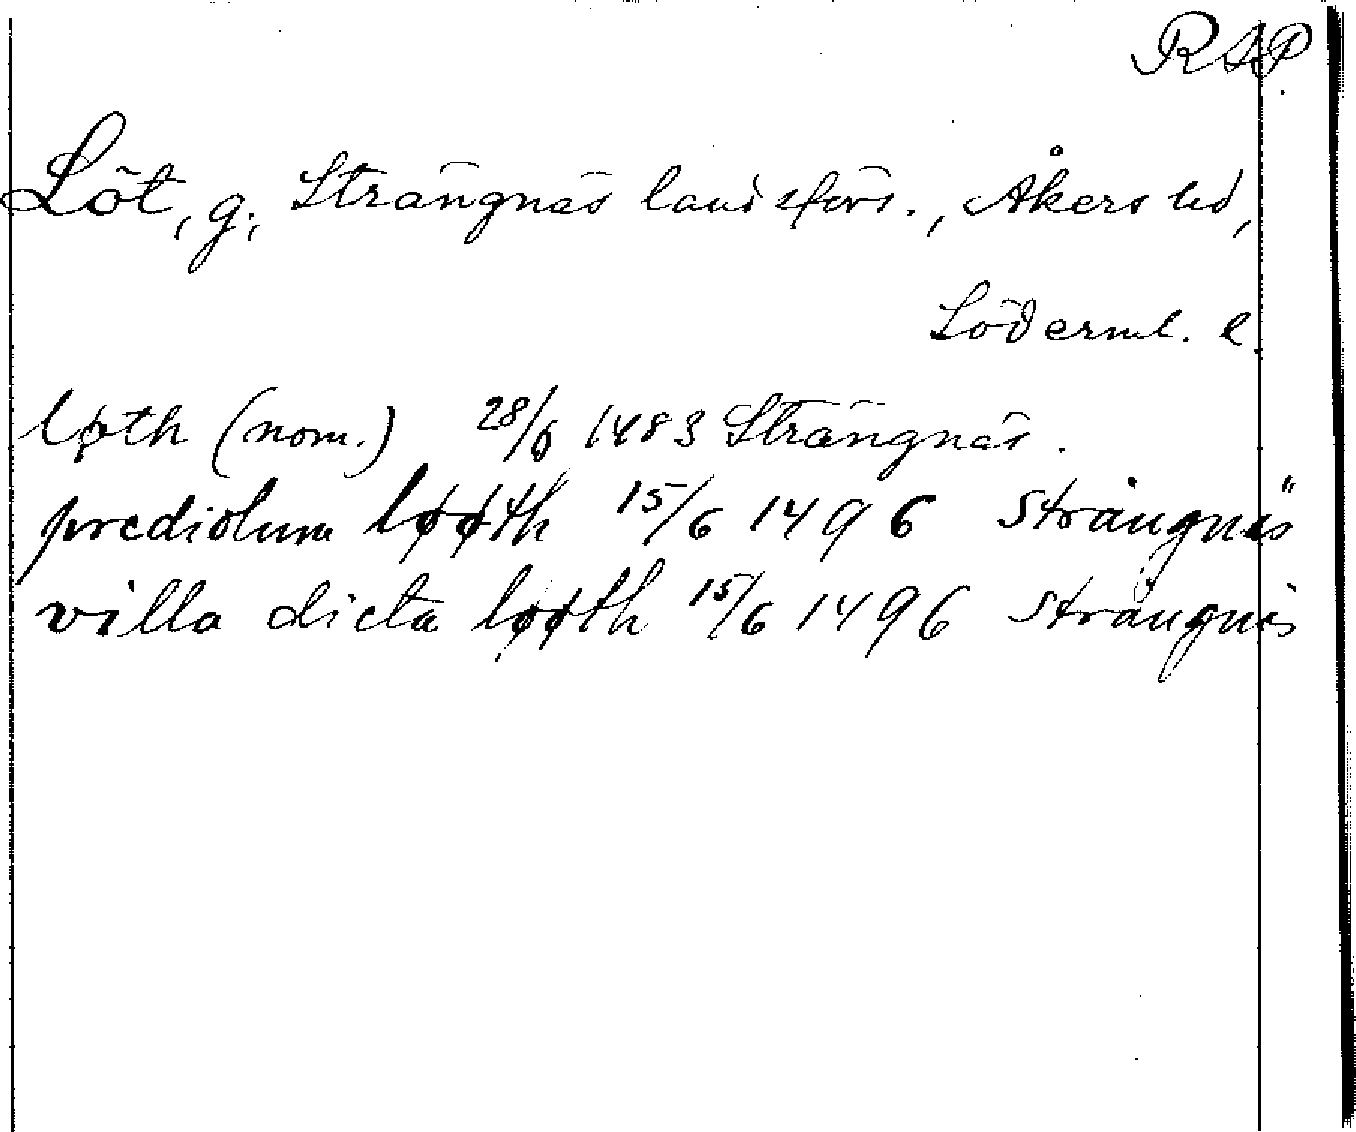 RAP
Löt, g., Strängnäs landsförs., Åkers hd,
Söderml. l.
løth (nom.) 28/6 1483 Strängnäs.
prediolum løøth 15/6 1496 Strängnäs
villa dicta løøth 15/6 1496 Strängnäs